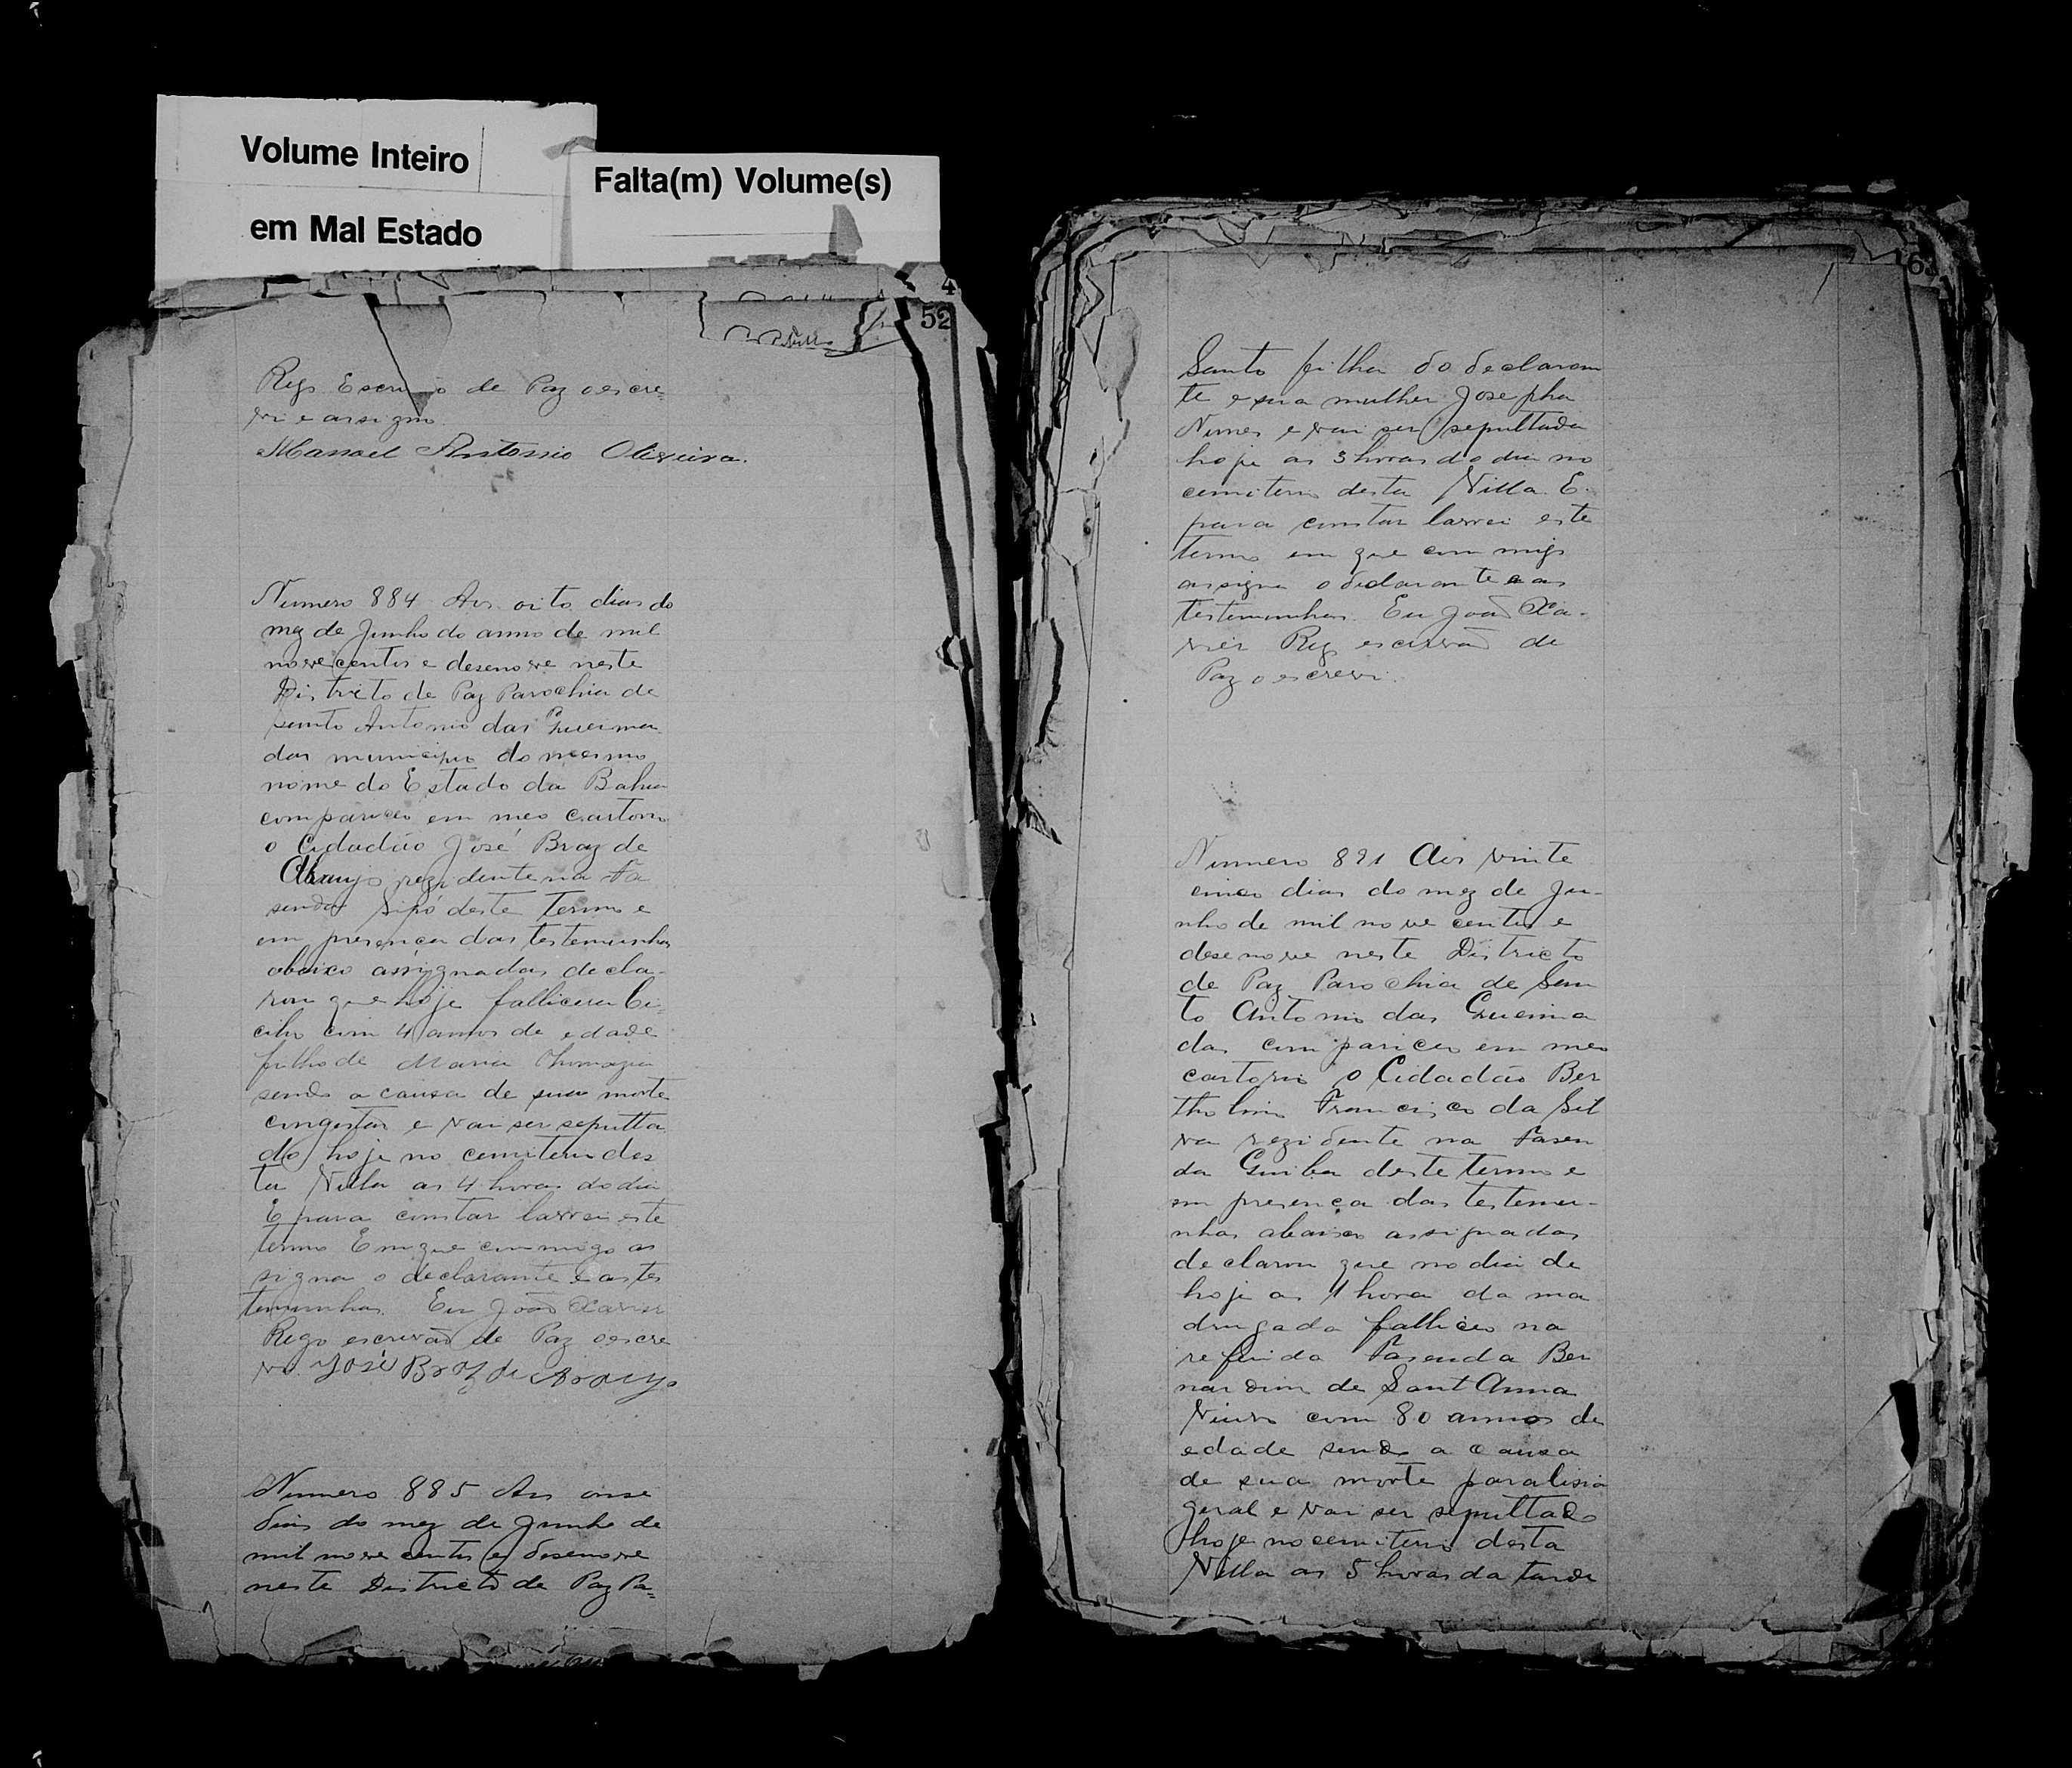 Volume Inteiro
em Mal Estado
Falta(m) Volume(s)
4
52
Rego Escrivão de Paz o escre=
vi e assigno
Manoel Antonio Oliveira.
Numero 884 Aos oito dias do
mez de Junho do anno de mil
nove centos e desenove neste
Districto de Paz Parochia de
Santo Antonio das Queima
das municipio do mesmo
nome do Estado da Bahia
compareceo em meo cartorio
o Cidadão José Braz de
Araujo rezidente na Fa
senda Sipó deste termo e
em presenca das testemunhas
abaixo assignadas decla-
rou que hoje falliceu Ci-
cilio com 4 annos de edade
filho de Maria Thomazia
sendo a causa de sua morte
congestão e vai ser sepulta
do hoje no cemiterio des
ta Villa as 4 horas do dia
E para constar lavrei este
termo Em que commigo as
signa o declarante e as tes
temunhas Eu João Xavier
Rego escrivão de Paz o escre
vi. José Braz de Araujo
Numero 885 Aos onse
dias do mez de Junho de
mil nove centos e desenove
neste Districto de Paz Pa=
Santo filha do declaran
te e sua mulher Josepha
Nunes e vai ser sepultada
hoje as 3 horas do dia no
cemiterio desta Villa E
para constar lavrei este
termo em que com migo
assigna o declarante e as
testemunhas. Eu João Xa-
vier Rego escrivão de
Paz o escrevi.
Numero 891 Aos vinte
cinco dias do mez de Ju-
nho de mil nove centos e
desenove neste Districto
de Paz Parochia de San
to Antonio das Queima
das compariceu em meo
cartorio o Cidadão Ber
tholino Francisco da Sil
va rezidente na Fasen
da Guiba deste termo e
em presença das testemu-
nhas abaixo assignadas
declarou que no dia de
hoje as 1 hora da ma
drugada falliceo na
referida Fasenda Ber
nardino de Sant Anna
Viuvo com 80 annos de
edade sendo a causa
de sua morte paralisia
geral e vai ser sepultado
hoje no cemiterio desta
Villa as 5 horas da tarde